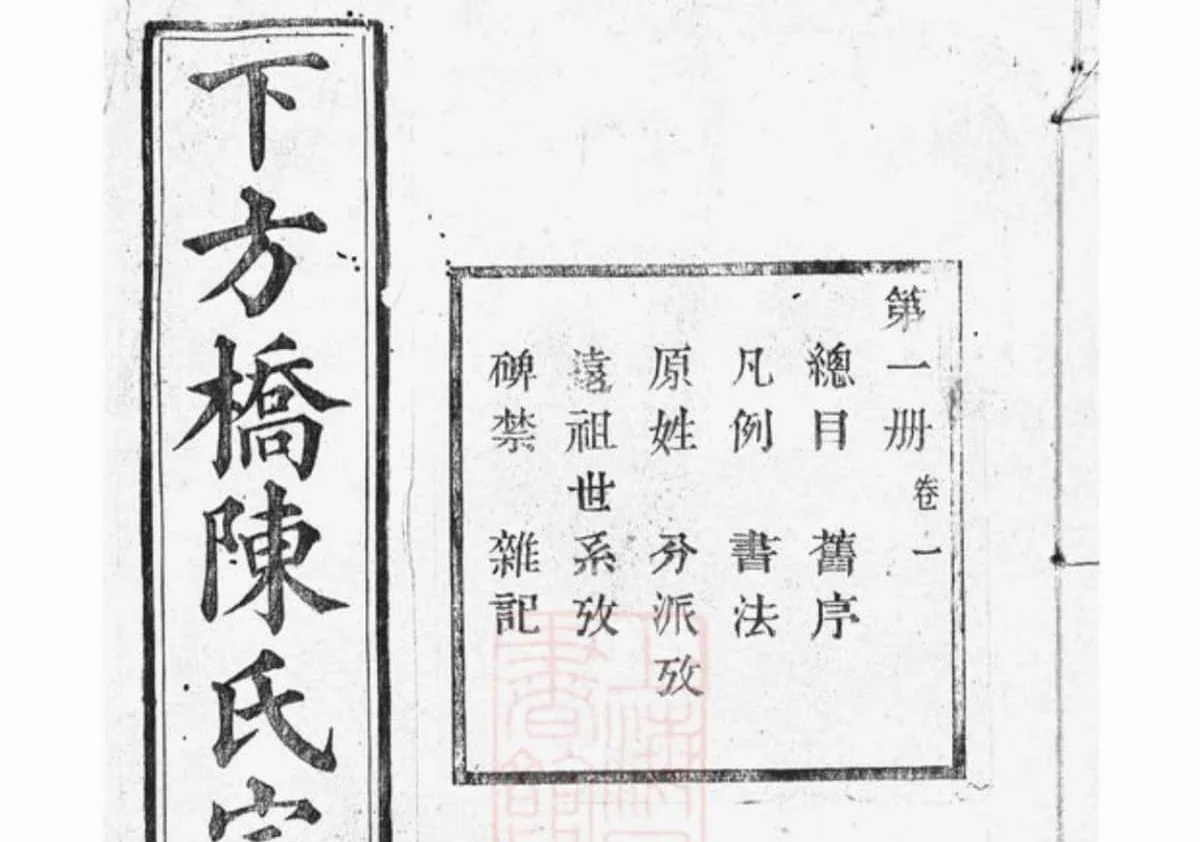 第一册 卷一
總目 舊序
凡例 書法
原姓 分派攷
遠祖世系攷
碑禁 雜記
下方橋陳氏
上海
書館